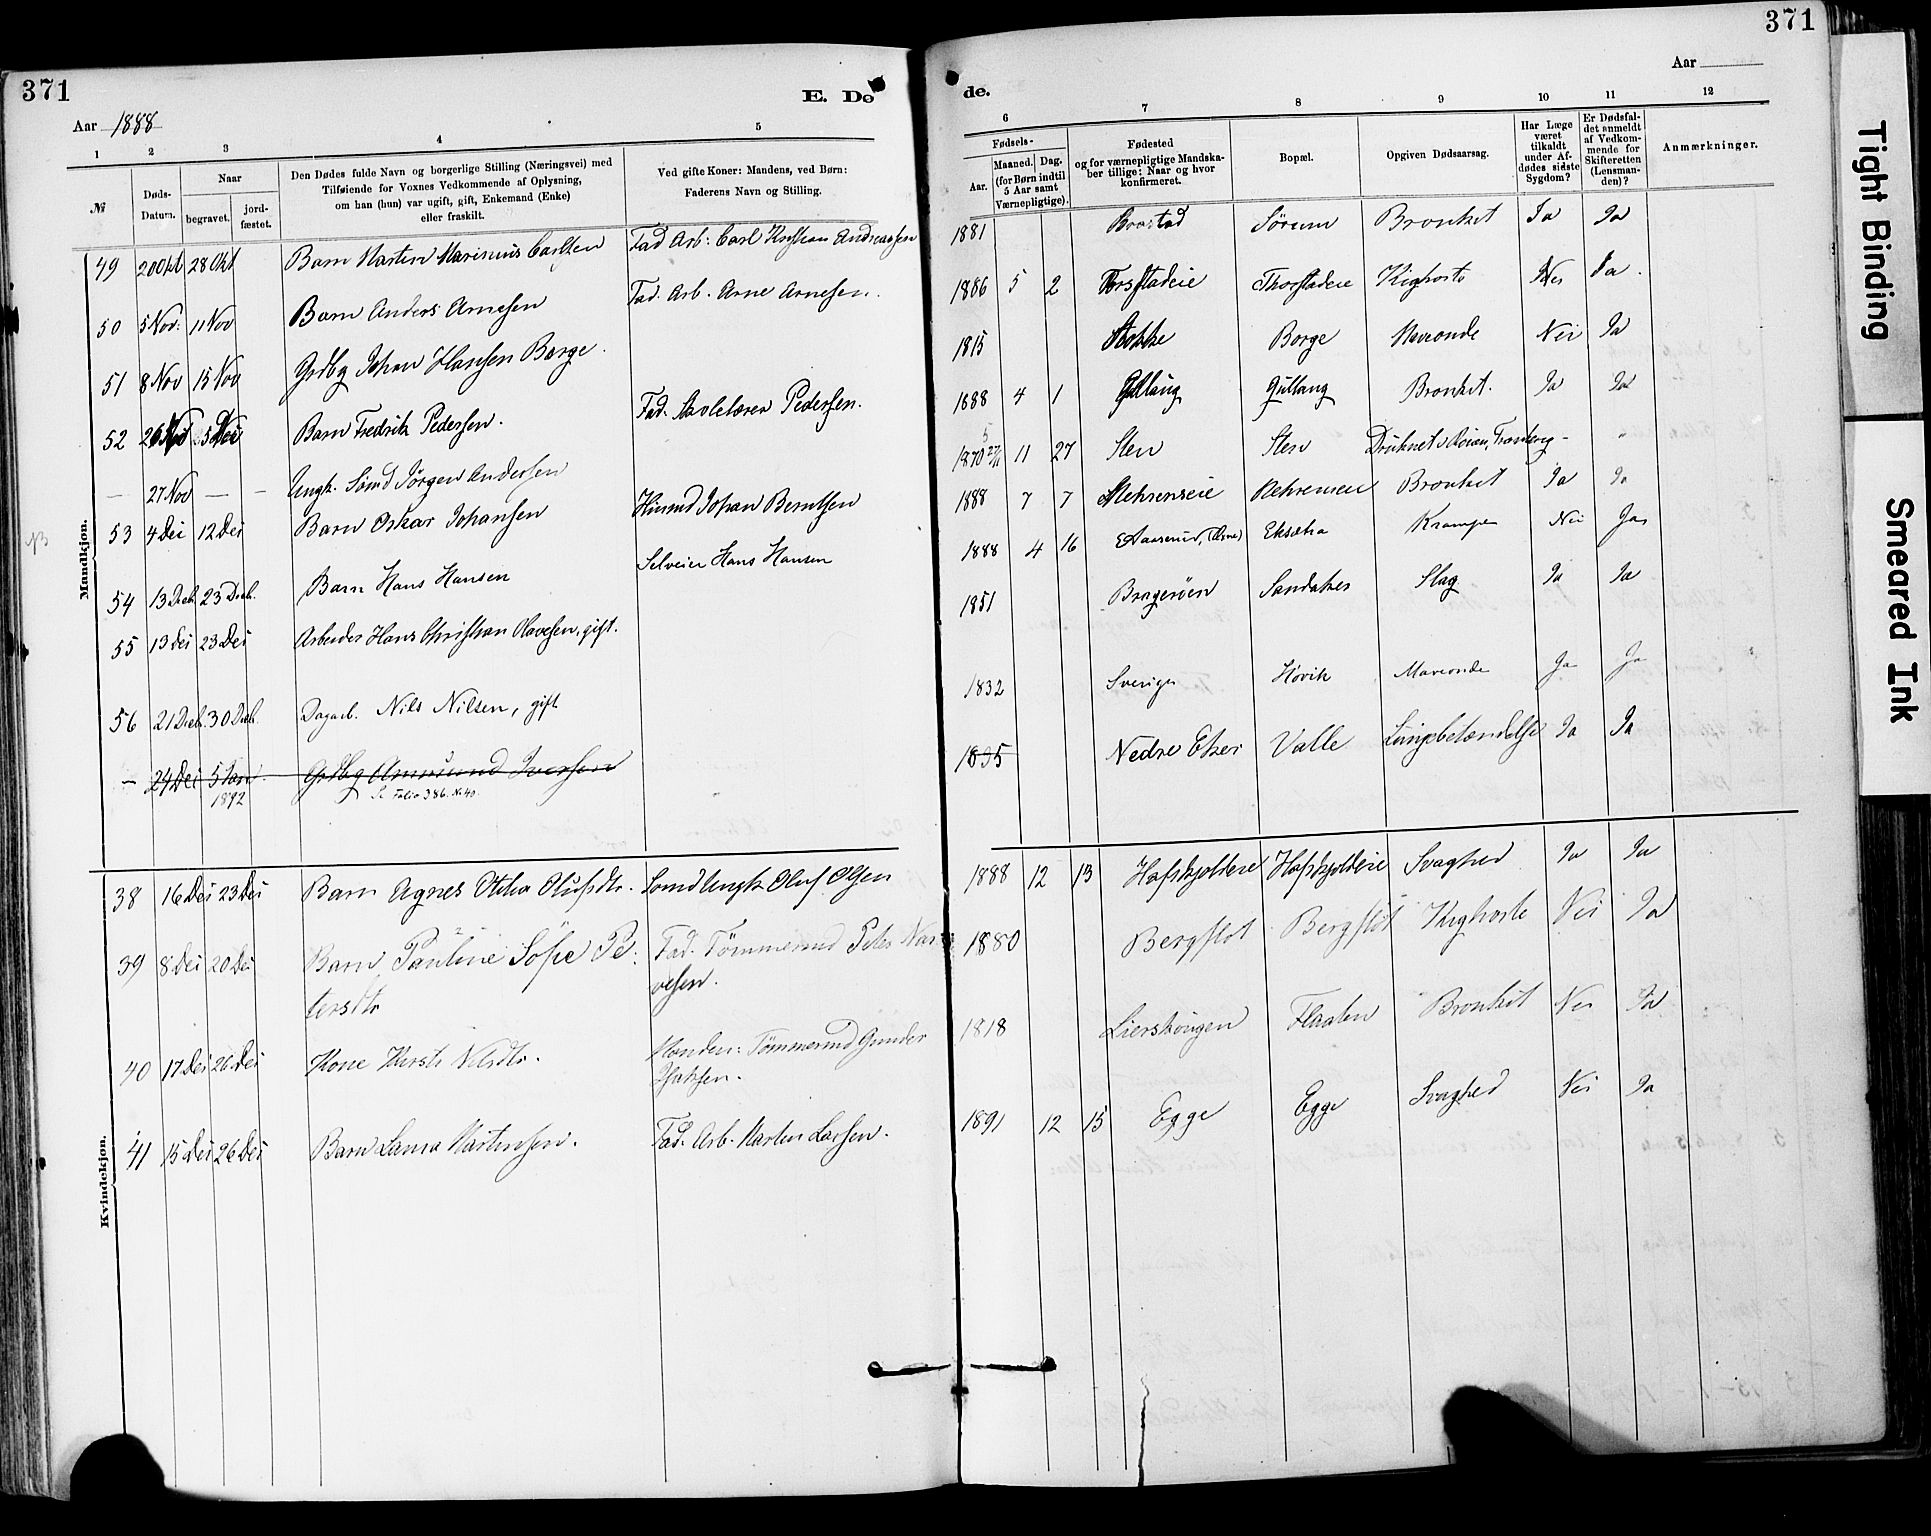 371
E. Dø
Aar 1888
1 2 3 4 5
№
Døds-Datum.
Naar
begravet.
jord-fæstet.
Den Dødes fulde Navn og borgerlige Stilling (Næringsvei) med
Tilføiende for Voxnes Vedkommende af Oplysning,
om han (hun) var ugift, gift, Enkemand (Enke)
eller fraskilt.
Ved gifte Koner: Mandens, ved Børn:
Faderens Navn og Stilling.
Mandkjøn.
49 20 Okt 28 Okt Barn Martin Marinius Carlsen Fad Arb: Carl Kristian Andreassen
50 5 Nov: 11 Nov Barn Anders Arnesen Fad. Arb. Arne Arnesen.
51 8 Nov 15 Nov Grdbg Johan Hansen Borge.
52 26 Nov 5 Dei Barn Fredrik Pedersen. Fad. Skolelærer Pedersen.
— 27 Nov — — Ungk. Sömd Jörgen Andersen
53 4 Dei 12 Dei Barn Oskar Johansen Husmd Johan Berntsen
54 13 Decb. 23 Decb. Barn Hans Hansen Selveier Hans Hansen
55 13 Dei 23 Dei Arbeider Hans Christian Olavesen, gift.
56 21 Decb. 30 Decb. Dagarb. Nils Nilsen, gift
— 24 Dei 5 Jan Grdbg Ammund Iversen
1892 Se Folio 386. No 40.
Kvindekjøn.
38 16 Dei 23 Dei Barn Agnes Otilia Olufsdtr. Somd Ungk Oluf Olsen
39 8 Dei 20 Dei Barn Pauline Söfie Pe- Fad. Tömmermd Peter Nar-
tersdtr vesen.
40 17 Dei 26 Dei Kone Kirsti Nilsdtr. Manden: Tömmermd Gunder
Isaksen.
41 15 Dei 26 Dei Barn Laura Martinsen. Fad. Arb. Martin Larsen.
371
de.
Aar
6 7 8 9 10 11 12
Fødsels-
Aar.
Maaned. Dag.
(for Børn indtil
5 Aar samt
Værnepligtige).
Fødested
og for værnepligtige Mandska-
ber tillige: Naar og hvor
konfirmeret.
Bopæl.
Opgiven Dødsaarsag.
Har Læge
været
tilkaldt
under Af-
dødes sidste
Sygdom?
Er Dødsfal-
det anmeldt
af Vedkom-
mende for
Skifteretten
(Lensman-
den)?
Anmærkninger.
1881 Sörum Bronkit Ja Ja
1886 5 2 Thorstadeie Kighoste Nei Ja.
1815 Borge Maveonde Nei Ja
1888 4 1 Gullaug Gullaug Bronkit. Ja Ja
1870 27/11 11 27 Sten Sten Druknet i "
1888 7 7 Bronkit Ja Ja
1888 4 16 Eksætra Krampe Nei Ja
1851 Bragerøen Sandaker Slag Ja Ja
1832 Sverige Høvik Maveonde Ja Ja
1835 Nedre Eker Valle Lungebetændelse Ja Ja
1888 12 13 Hafskjoldeie Hafskjoldeie Svaghed Ja Ja
1880 Bergflot Bergflot Kighoste Nei Ja
1818 Lierskougen Flaaten Bronkit Nei Ja
1891 12 15 Egge Egge Svaghed Nei Ja
Tight Binding
Smeared Ink